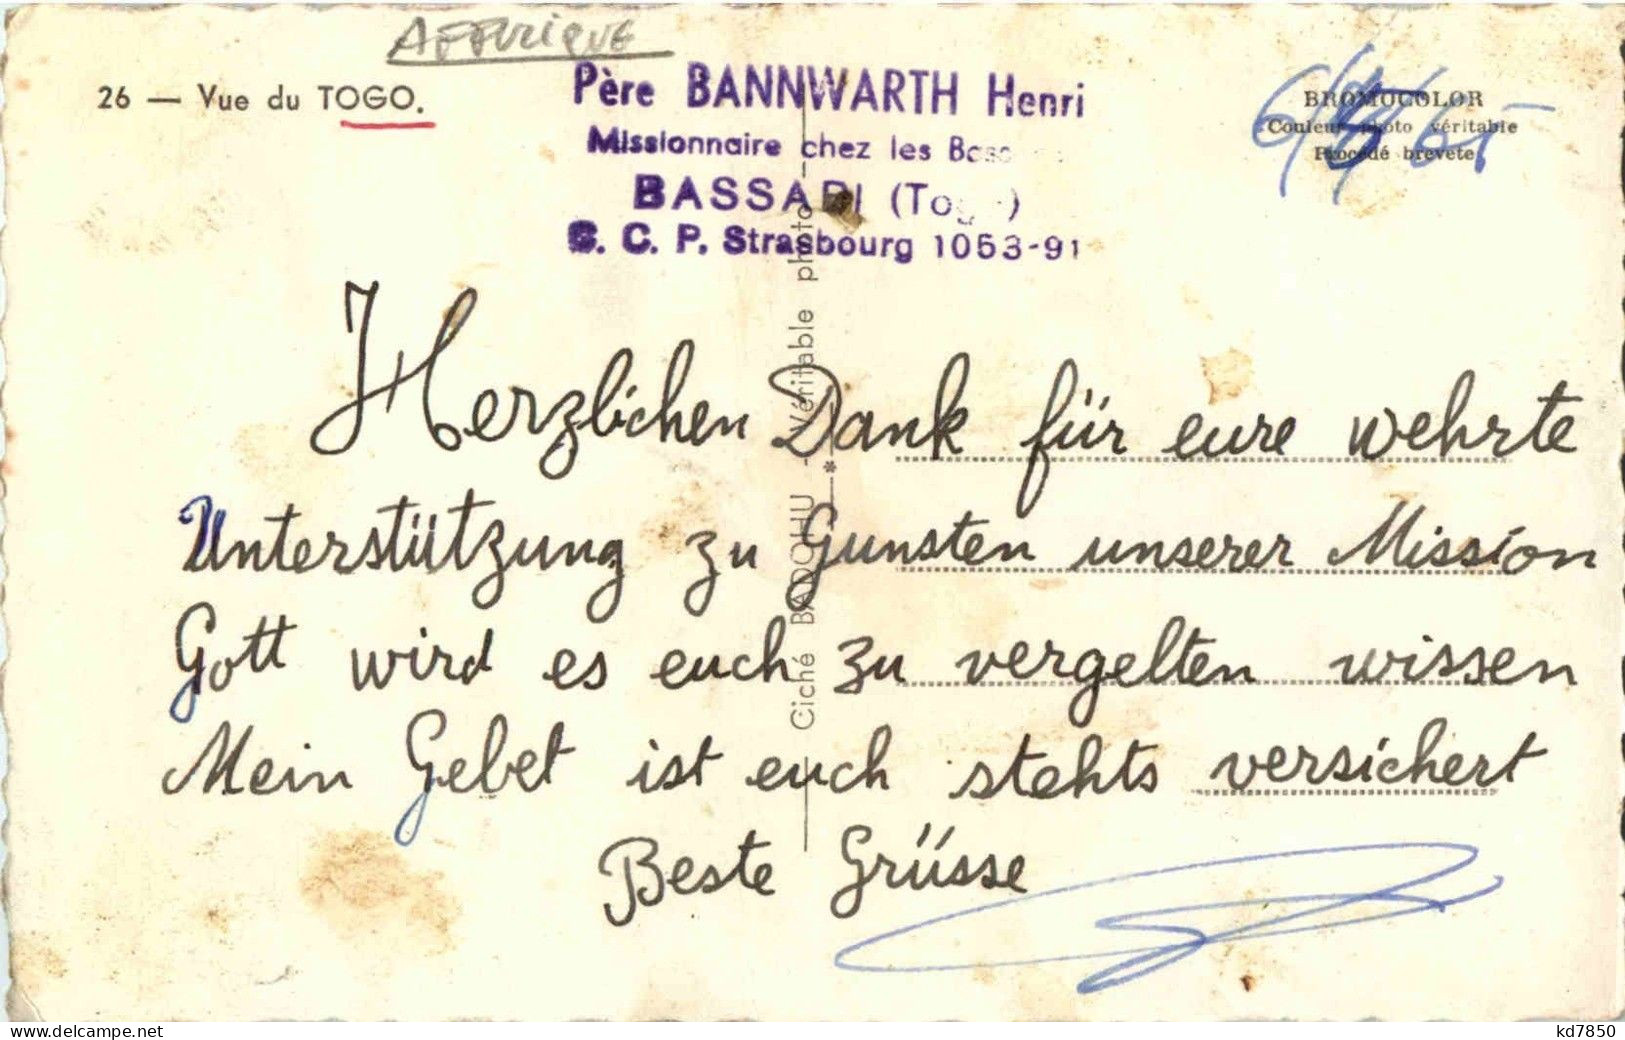 AFFRIQUE
26 — Vue du TOGO.
Père BANNWARTH Henri
Missionnaire chez les
BASSARI (Togo)
C. C. P. Strasbourg 1053-91
BROMOCOLOR
Couleur photo véritable
Procédé breveté
Herzlichen Dank für eure wehrte
Unterstützung zu Gunsten unserer Mission
Gott wird es euch zu vergelten wissen
Mein Gebet ist euch stehts versichert
Beste Grüsse
Cliché BADOHU - Véritable photo
www.delcampe.net
kd7850